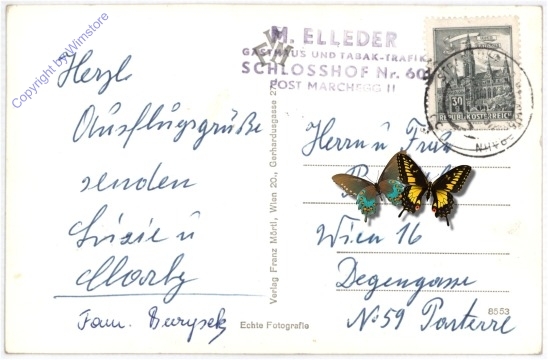 Copyright by Wimstore
M. ELLEDER
GASTHAUS UND TABAK-TRAFIK
SCHLOSSHOF Nr. 60
POST MARCHEGG II
30
REPUBLIK ÖSTERREICH
Herzl.
Ausflugsgrüße
senden
Luzie u
Fam. Burysek
Verlag Franz Mörtl, Wien 20., Gerhardusgasse 25
Echte Fotografie
Herrn u Frau
Wien 16
Degengasse
No 59 Parterre
8553